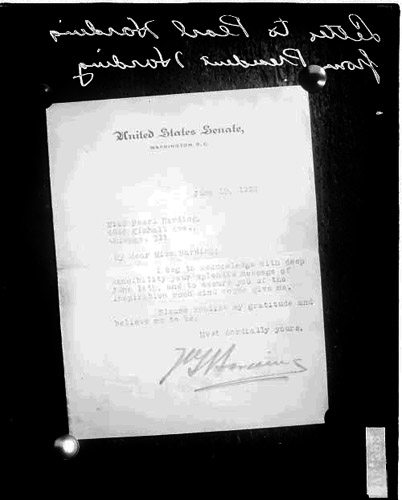 Letter to Pearl Harding
from President Harding
United States Senate,
WASHINGTON, D.C.
June 1920
Miss Pearl Harding,
Kimball Ave.,
Chicago, Ill
My Dear Miss Harding:
I beg to acknowledge with deep
sensibility your splendid message of
June 14th, and to assure you of the
inspiration such kind words give me.
Please realize my gratitude and
believe me to be,
Most cordially yours,
WGHarding